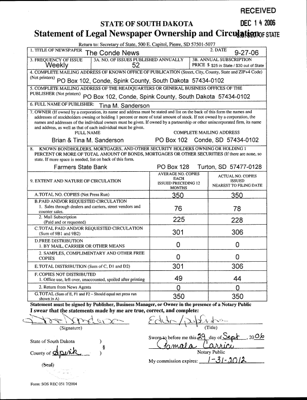 RECEIVED
DEC 14 2006
STATE OF SOUTH DAKOTA
Statement of Legal Newspaper Ownership and Circulation
OF STATE
Return to: Secretary of State, 500 E. Capitol, Pierre, SD 57501-5077
1. TITLE OF NEWSPAPER The Conde News
2. DATE 9-27-06
3. FREQUENCY OF ISSUE Weekly
3A. NO. OF ISSUES PUBLISHED ANNUALLY 52
3B. ANNUAL SUBSCRIPTION PRICE $ 25 in State / $30 out of State
4. COMPLETE MAILING ADDRESS OF KNOWN OFFICE OF PUBLICATION (Street, City, County, State and ZIP+4 Code) (Not printers)
PO Box 102, Conde, Spink County, South Dakota 57434-0102
5. COMPLETE MAILING ADDRESS OF THE HEADQUARTERS OR GENERAL BUSINESS OFFICES OF THE PUBLISHER (Not printers)
PO Box 102, Conde, Spink County, South Dakota 57434-0102
6. FULL NAME OF PUBLISHER: Tina M. Sanderson
7. OWNER (If owned by a corporation, its name and address must be stated and
addresses of stockholders owning or holding 1 percent or more of total amount of stock. If not owned by a corporation, the
names and addresses of the individual owners must be given. If owned by a partnership or other unincorporated firm, its name
and address, as well as that of each individual must be given.
FULL NAME COMPLETE MAILING ADDRESS
Brian & Tina M. Sanderson PO Box 102 Conde, SD 57434-0102
8. KNOWN BONDHOLDERS, MORTGAGES, AND OTHER SECURITY HOLDERS OWNING OR HOLDING 1
PERCENT OR MORE OF TOTAL AMOUNT OF BONDS, MORTGAGES OR OTHER SECURITIES (If there are none, so
state. If more space is needed, list on back of this form.
Farmers State Bank PO Box 128 Turton, SD 57477-0128
9. EXTENT AND NATURE OF CIRCULATION
AVERAGE NO. COPIES EACH ISSUED PRECEDING 12 MONTHS
ACTUAL NO. COPIES ISSUED NEAREST TO FILING DATE
A. TOTAL NO. COPIES (Net Press Run) 350 350
B. PAID AND/OR REQUESTED CIRCULATION
1. Sales through dealers and carriers, street vendors and counter sales. 76 78
2. Mail Subscription (Paid and or requested) 225 228
C. TOTAL PAID AND/OR REQUESTED CIRCULATION (Sum of 9B1 and 9B2) 301 306
D. FREE DISTRIBUTION
1. BY MAIL, CARRIER OR OTHER MEANS 0 0
2. SAMPLES, COMPLIMENTARY AND OTHER FREE COPIES 0 0
E. TOTAL DISTRIBUTION (Sum of C, D1 and D2) 301 306
F. COPIES NOT DISTRIBUTED
1. Office use, left over, unaccounted, spoiled after printing 49 44
2. Return from News Agents 0 0
G. TOTAL (Sum of E, F1 and F2 - Should equal net press run shown in A) 350 350
Statement must be signed by Publisher, Business Manager, or Owner in the presence of a Notary Public
I swear that the statements made by me are true, correct, and complete:
(Signature) (Title)
State of South Dakota )
County of Spink )
(Seal)
Sworn to before me this 29 day of Sept 2006
Notary Public
My commission expires: 1-31-2012
Form: SOS REC 051 7/2004